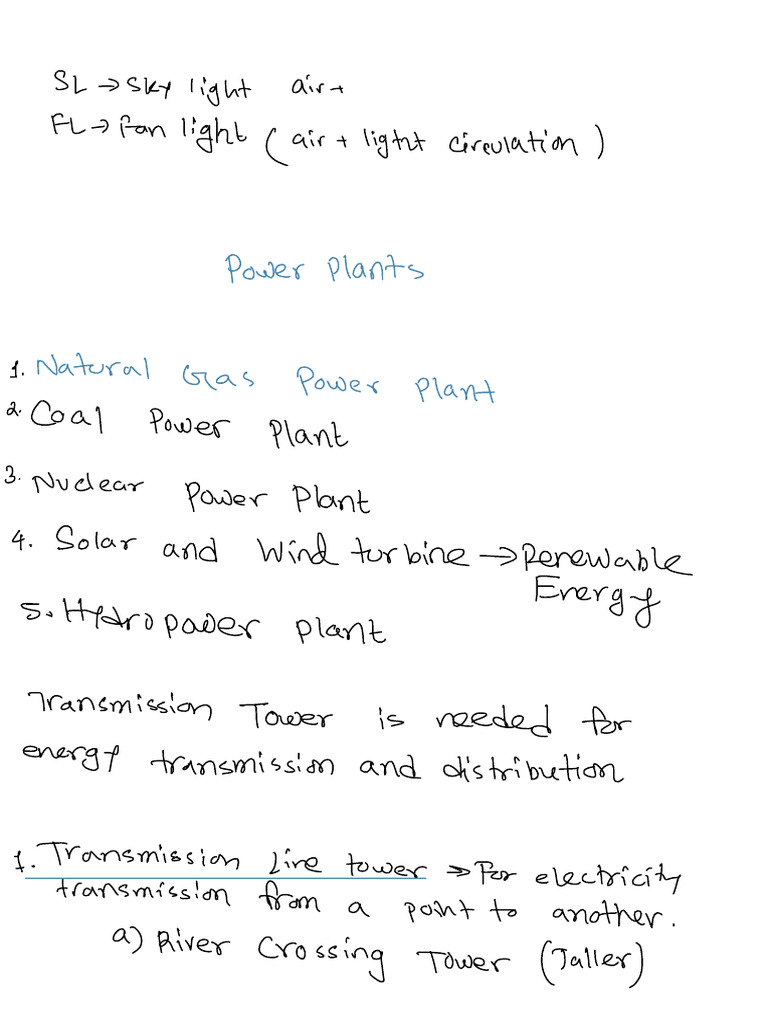 SL → Sky light air +
FL → Fan light ( air + light circulation )
Power Plants
1. Natural Gas Power Plant
2. Coal Power Plant
3. Nuclear Power Plant
4. Solar and Wind turbine → Renewable
Energy
5. Hydropower plant
Transmission Tower is needed for
energy transmission and distribution
1. Transmission Line tower ⇒ For electricity
transmission from a point to another.
a) River Crossing Tower (Taller)